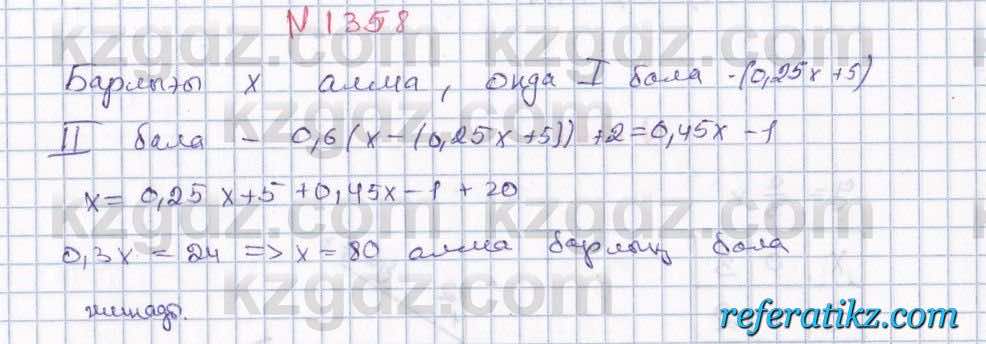 N 1358
Барлығы x алма, онда I бала - (0,25x + 5)
II бала - 0,6(x - (0,25x + 5)) + 2 = 0,45x - 1
x = 0,25x + 5 + 0,45x - 1 + 20
0,3x = 24 => x = 80 алма барлық бала
жинады.
kzgdz.com
referatikz.com